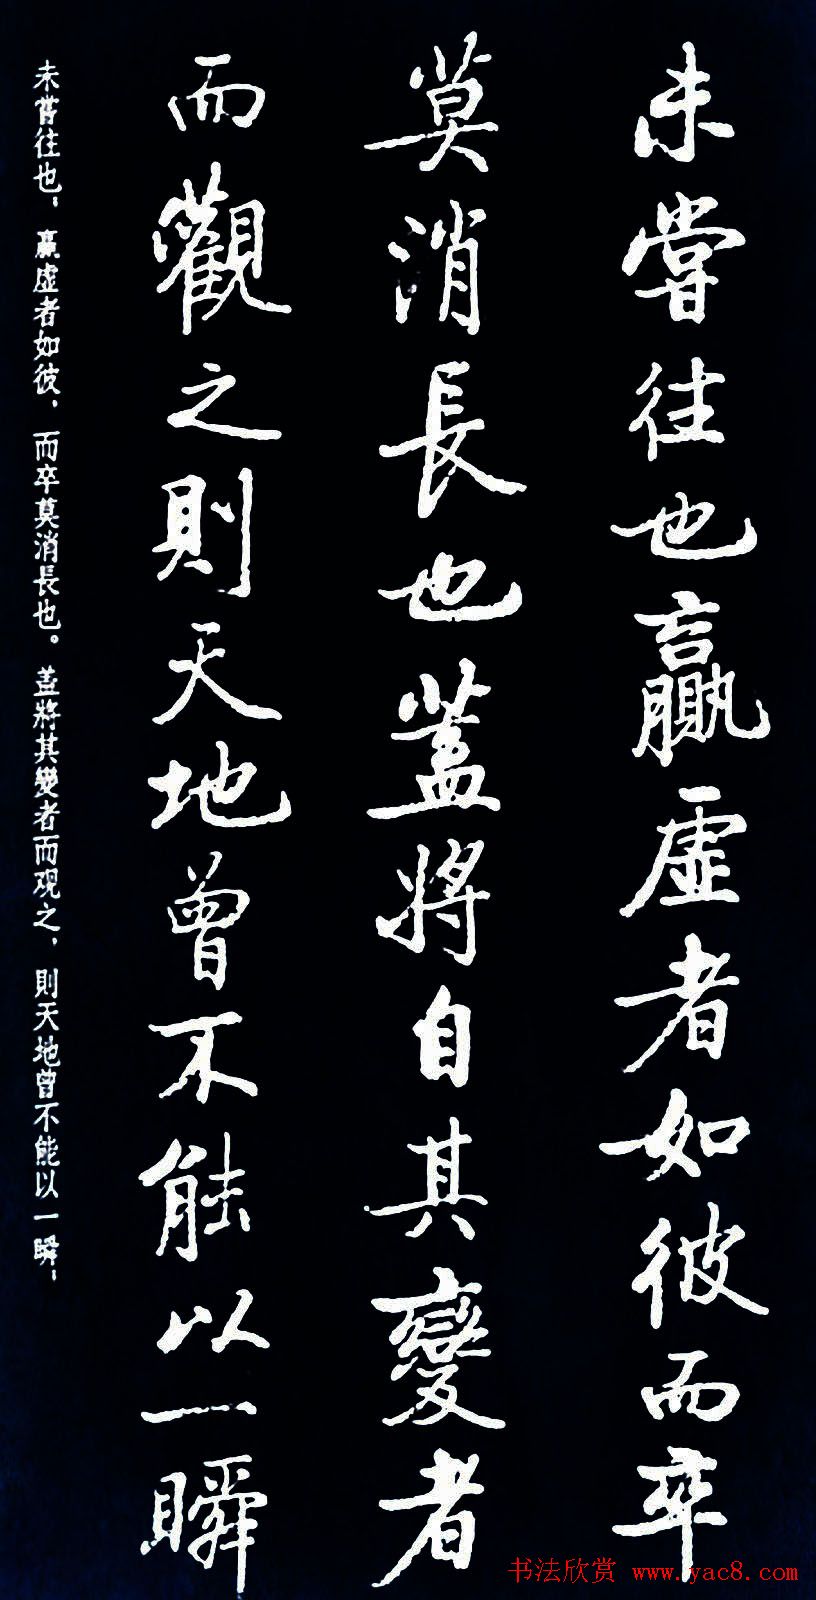 未嘗往也贏虛者如彼而卒
莫消長也蓋將自其變者
而觀之則天地曾不能以一瞬
未嘗往也，贏虛者如彼，而卒莫消長也。蓋將其變者而观之，則天地曾不能以一瞬，
书法欣赏 www.yac8.com